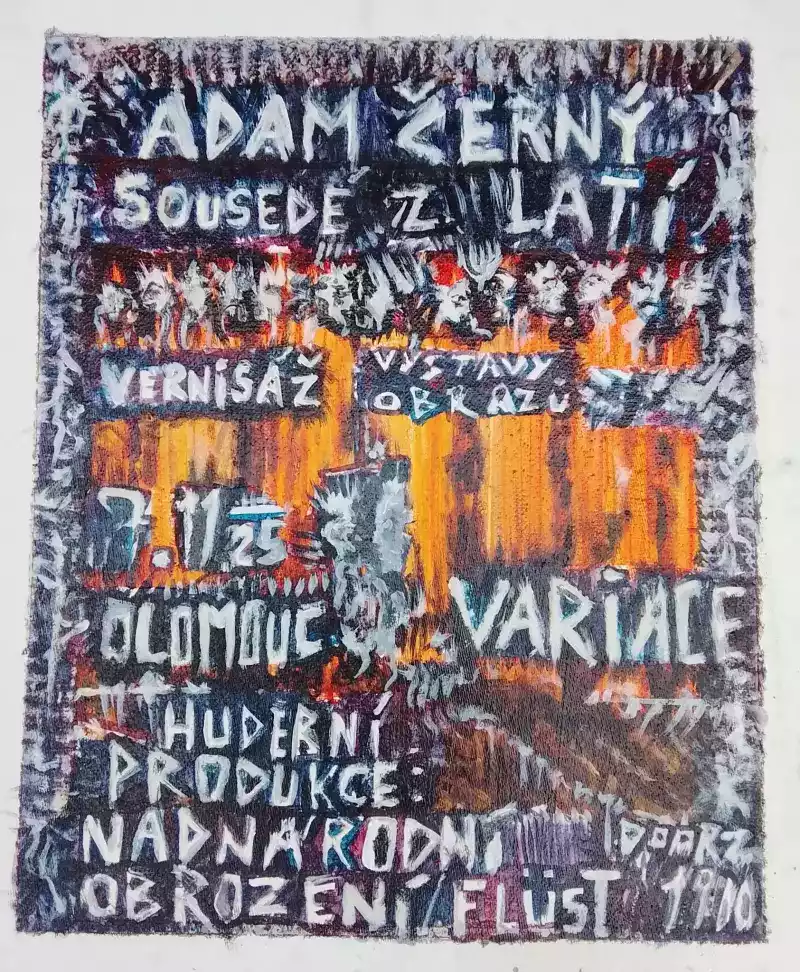 ADAM ČERNÝ
SOUSEDÉ Z LATÍ
VERNISÁŽ
VÝSTAVY
OBRAZŮ
7.11
25
OLOMOUC
VARIACE
HUDEBNÍ
PRODUKCE:
NADNÁRODNÍ
OBROZENÍ / FLÜST
1900